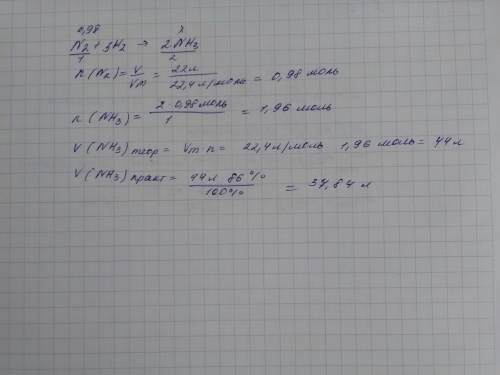 0,98 x
N2 + 3H2 → 2NH3
1 2
n(N2) = V/Vm = 22л/22,4 л/моль = 0,98 моль
n(NH3) = 2 0,98 моль/1 = 1,96 моль
V(NH3) теор = Vm n = 22,4 л/моль 1,96 моль = 44л
V(NH3) практ = 44л 86%/100% = 37,84 л